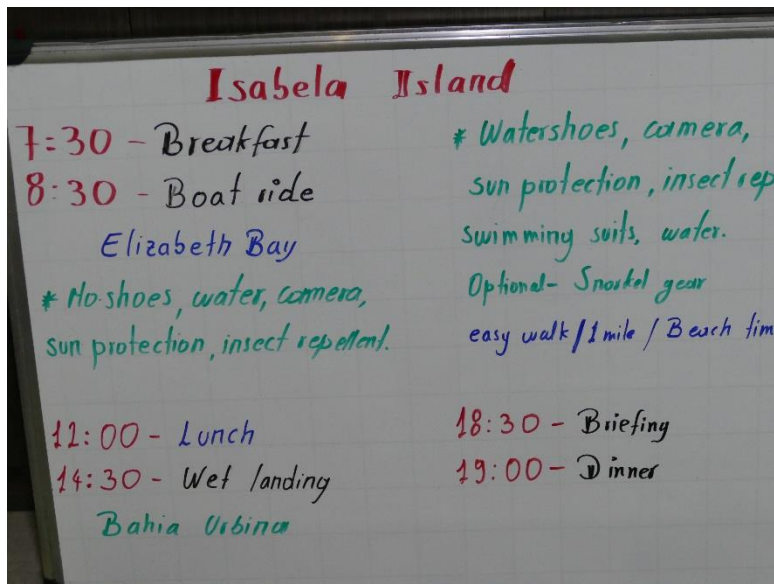 Isabela Island
7:30 - Breakfast
8:30 - Boat ride
Elizabeth Bay
* No shoes, water, camera,
sun protection, insect repellent.
12:00 - Lunch
14:30 - Wet landing
Bahia Urbina
* Watershoes, camera,
sun protection, insect rep
swimming suits, water.
Optional- Snorkel gear
easy walk/1 mile / Beach tim
18:30 - Briefing
19:00 - Dinner